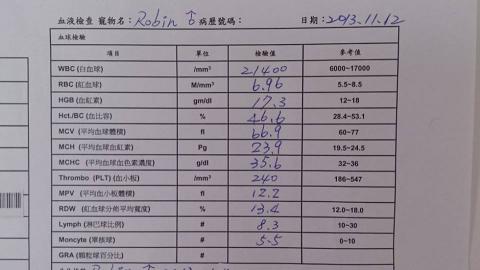 血液檢查 寵物名：Robin ♂ 病歷號碼： 日期：2013.11.12
血球檢驗
項目 單位 檢驗值 參考值
WBC (白血球) /mm³ 21400 6000~17000
RBC (紅血球) M/mm³ 6.96 5.5~8.5
HGB (血紅素) gm/dl 17.3 12~18
Hct./BC (血比容) % 46.6 28.4~53.1
MCV (平均血球體積) fl 66.9 60~77
MCH (平均血球血紅素) Pg 23.9 19.5~24.5
MCHC (平均血球血色素濃度) g/dl 35.6 32~36
Thrombo (PLT) (血小板) /mm³ 240 186~547
MPV (平均血小板體積) fl 12.2
RDW (紅血球分佈平均寬度) % 13.4 12.0~18.0
Lymph (淋巴球比例) # 8.3 10~30
Moncyte (單核球) # 5.5 0~10
GRA (顆粒球百分比) #